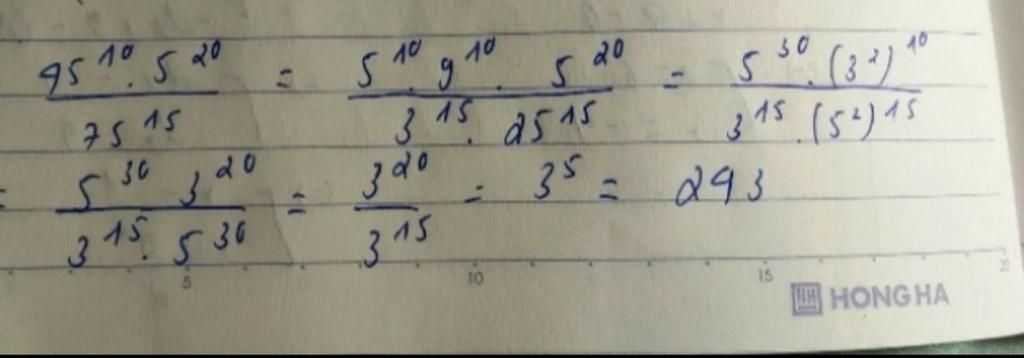 45¹⁰ . 5²⁰ / 75¹⁵ = 5¹⁰ 9¹⁰ . 5²⁰ / 3¹⁵ . 25¹⁵ = 5³⁰ . (3²)¹⁰ / 3¹⁵ . (5²)¹⁵
= 5³⁰ 3²⁰ / 3¹⁵ . 5³⁰ = 3²⁰ / 3¹⁵ = 3⁵ = 243
5 10 15 20
HONG HA